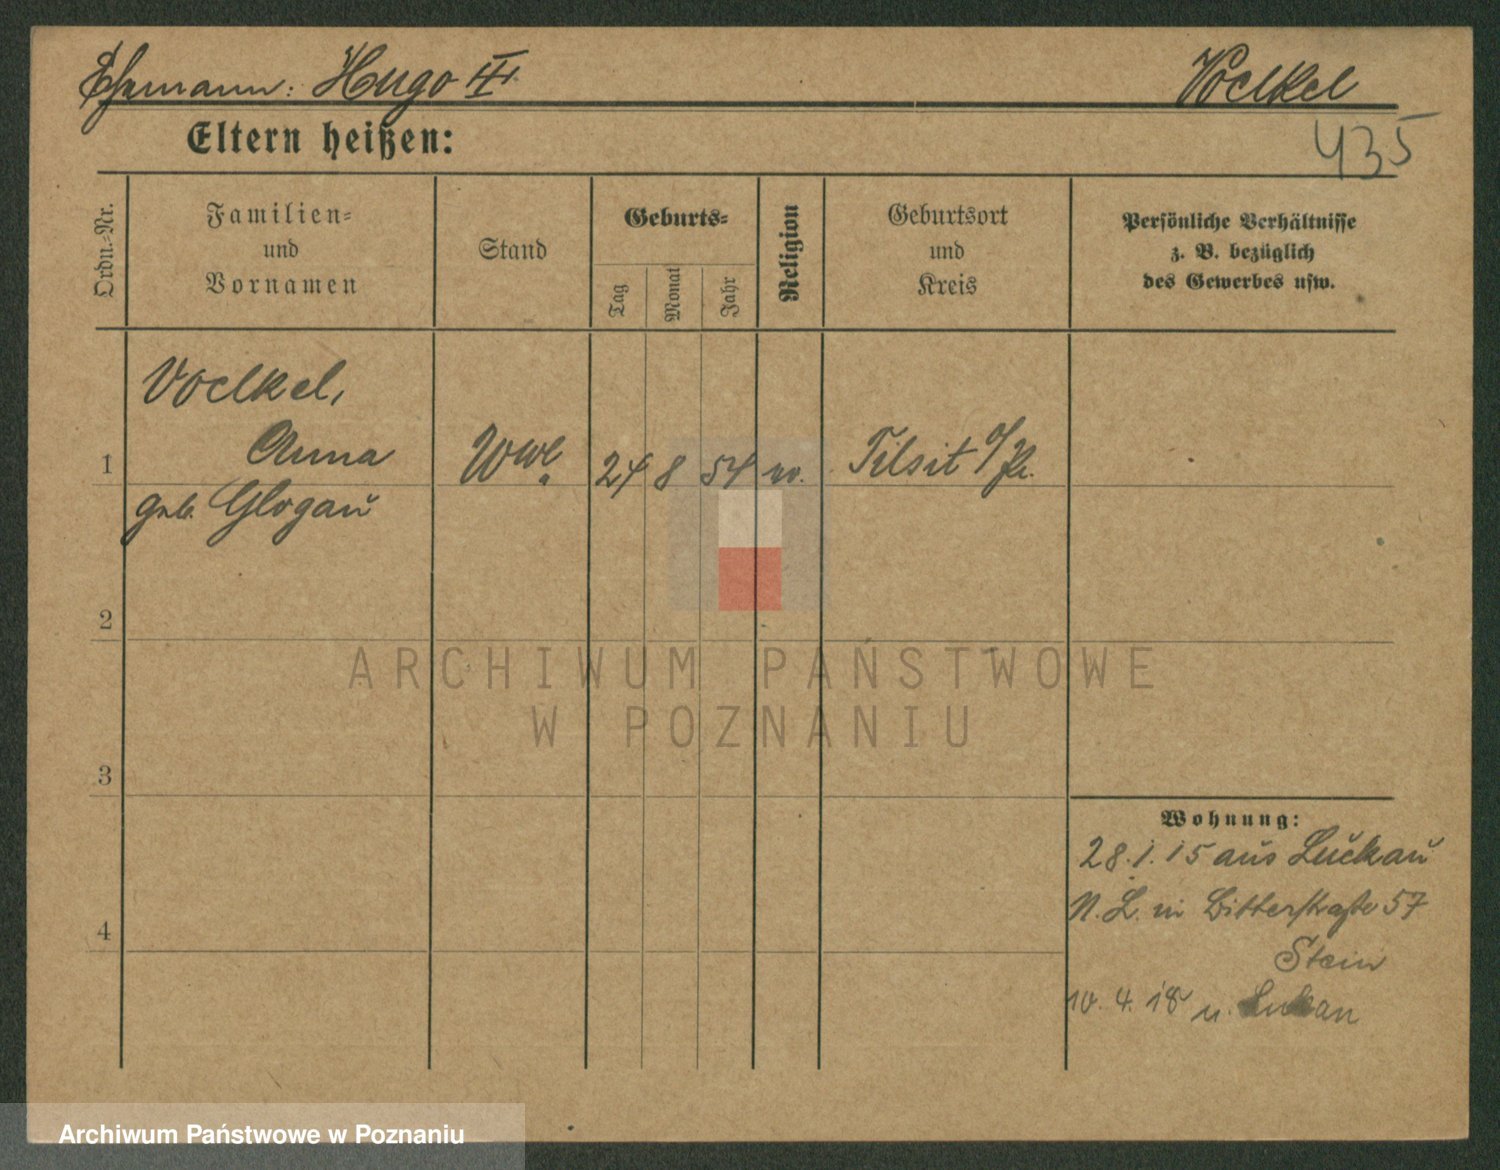 Ehemann: Hugo III. Voelkel
435
Eltern heißen:
Ordn.-Nr.
Familien-
und
Vornamen
Stand
Geburts-
Tag
Monat
Jahr
Religion
Geburtsort
und
Kreis
Persönliche Verhältnisse
z. B. bezüglich
des Gewerbes usw.
Voelkel,
1 Anna Wwe 24 8 54 Tilsit O/Pr.
geb. Glogau
2
3
4
Wohnung:
28.1.15 aus Luckau
N.L. in Bitterstraße 57
Stein
10.4.18 n. Lukau
ARCHIWUM PAŃSTWOWE
W POZNANIU
Archiwum Państwowe w Poznaniu